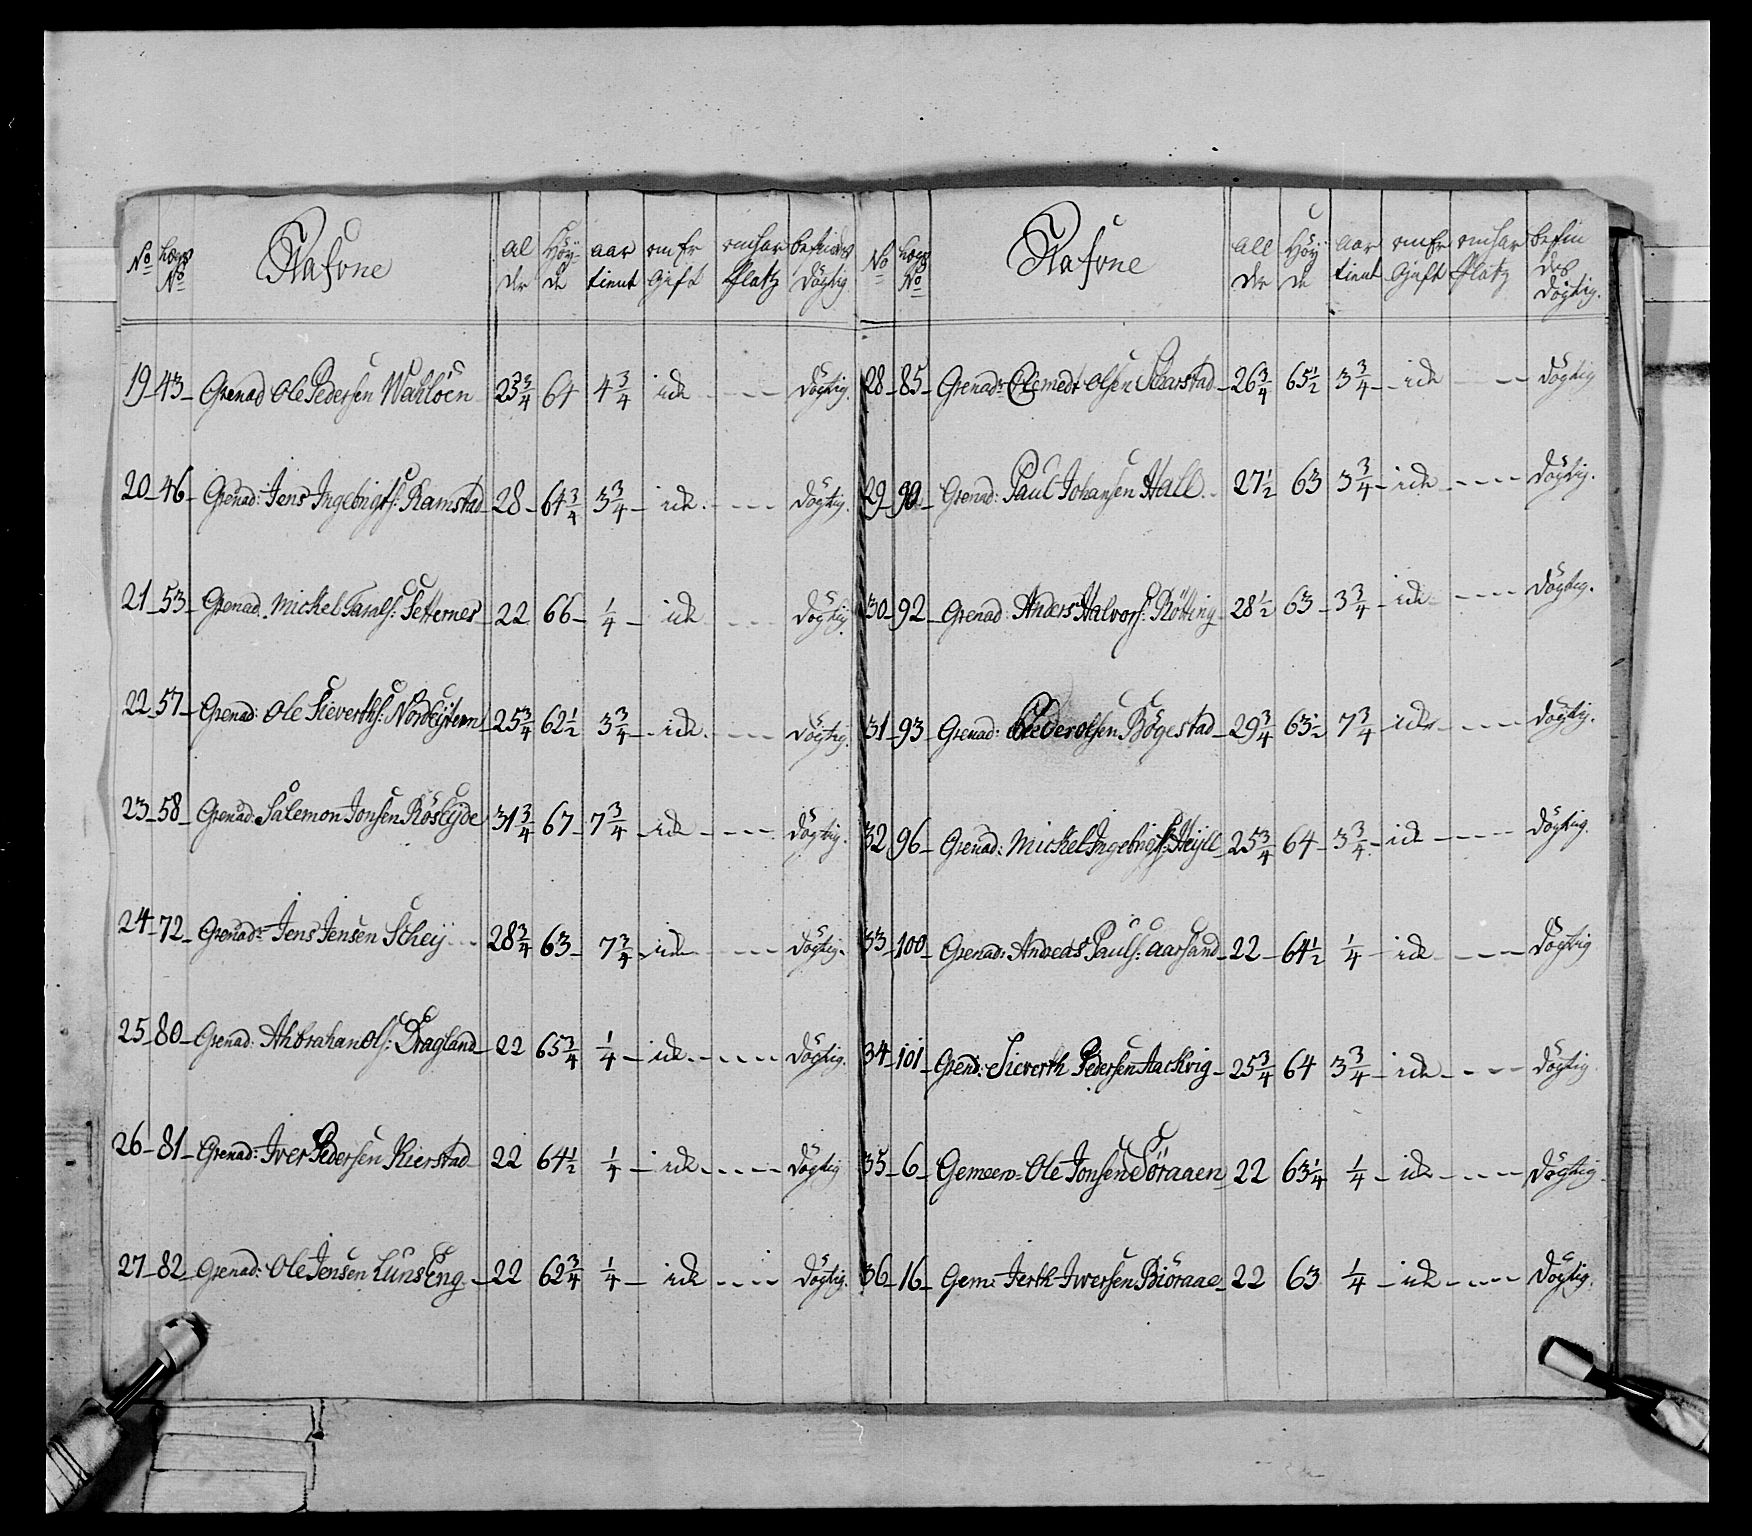 No Legs No Nafvne Al der Höy de aar tient om Er Gift om har Platz befindes Dögtig
19 43 Grenad Ole Pedersen Wahlöen 23 3/4 64 4 3/4 ick --- Dögtig.
20 46 Grenad: Jens Ingebrigts: Ramstad 28 64 3/4 3 3/4 ick --- Dögtig.
21 53 Grenad. Michel Taral: Setternes 22 66 1/4 ick --- Dögtig.
22 57 Grenad: Ole Sieverths: 25 3/4 62 1/2 3 3/4 ick --- Dögtig.
23 58 Grenad: Salemon Jonsen Röslyde 31 3/4 67 7 3/4 ick --- Dögtig.
24 72 Grenad: Jens Jensen Scheij 28 3/4 63 7 3/4 ick --- Dögtig.
25 80 Grenad: Ahbrahan Ols: Dragland 22 65 3/4 1/4 ick --- Dögtig.
26 81 Grenad: Iver Pedersen Kierstad 22 64 1/2 1/4 ick --- Dögtig
27 82 Grenad: Ole Jensen LunsEng 22 62 3/4 1/4 ick --- Dögtig.
No Legs No Nafvne All der Höy de aar tient om Er Gift om har Platz befin des Dögtig.
28 85 Grenad: Clemedt Olsen Skarstad 26 3/4 65 1/2 3 3/4 ick -- Dögtig
29 90 Grenad: Paul Johansen Hall 27 1/2 63 3 3/4 ick --- Dögtig.
30 92 Grenad: Anders Halvors: Rötting 28 1/2 63 3 3/4 ick --- Dögtig.
31 93 Grenad: Peder Olsen Bögestad 29 3/4 63 1/2 7 3/4 ick --- Dögtig.
32 96 Grenad: Michel Ingebrigts: Heyll 25 3/4 64 3 3/4 ick --- Dögtig.
33 100 Grenad: Andreas Pauls: Aarsand 22 64 1/2 1/4 ick --- Dögtig
34 101 Grend: Sieverth Pedersen Aackvig 25 3/4 64 3 3/4 ick --- Dögtig
35 6 Gemeen Ole Jonsen Söraaen 22 63 1/4 1/4 ick --- Dögtig
36 16 Gem: Jerth Iwersen Biöraae 22 63 1/4 ick --- Dögtig.